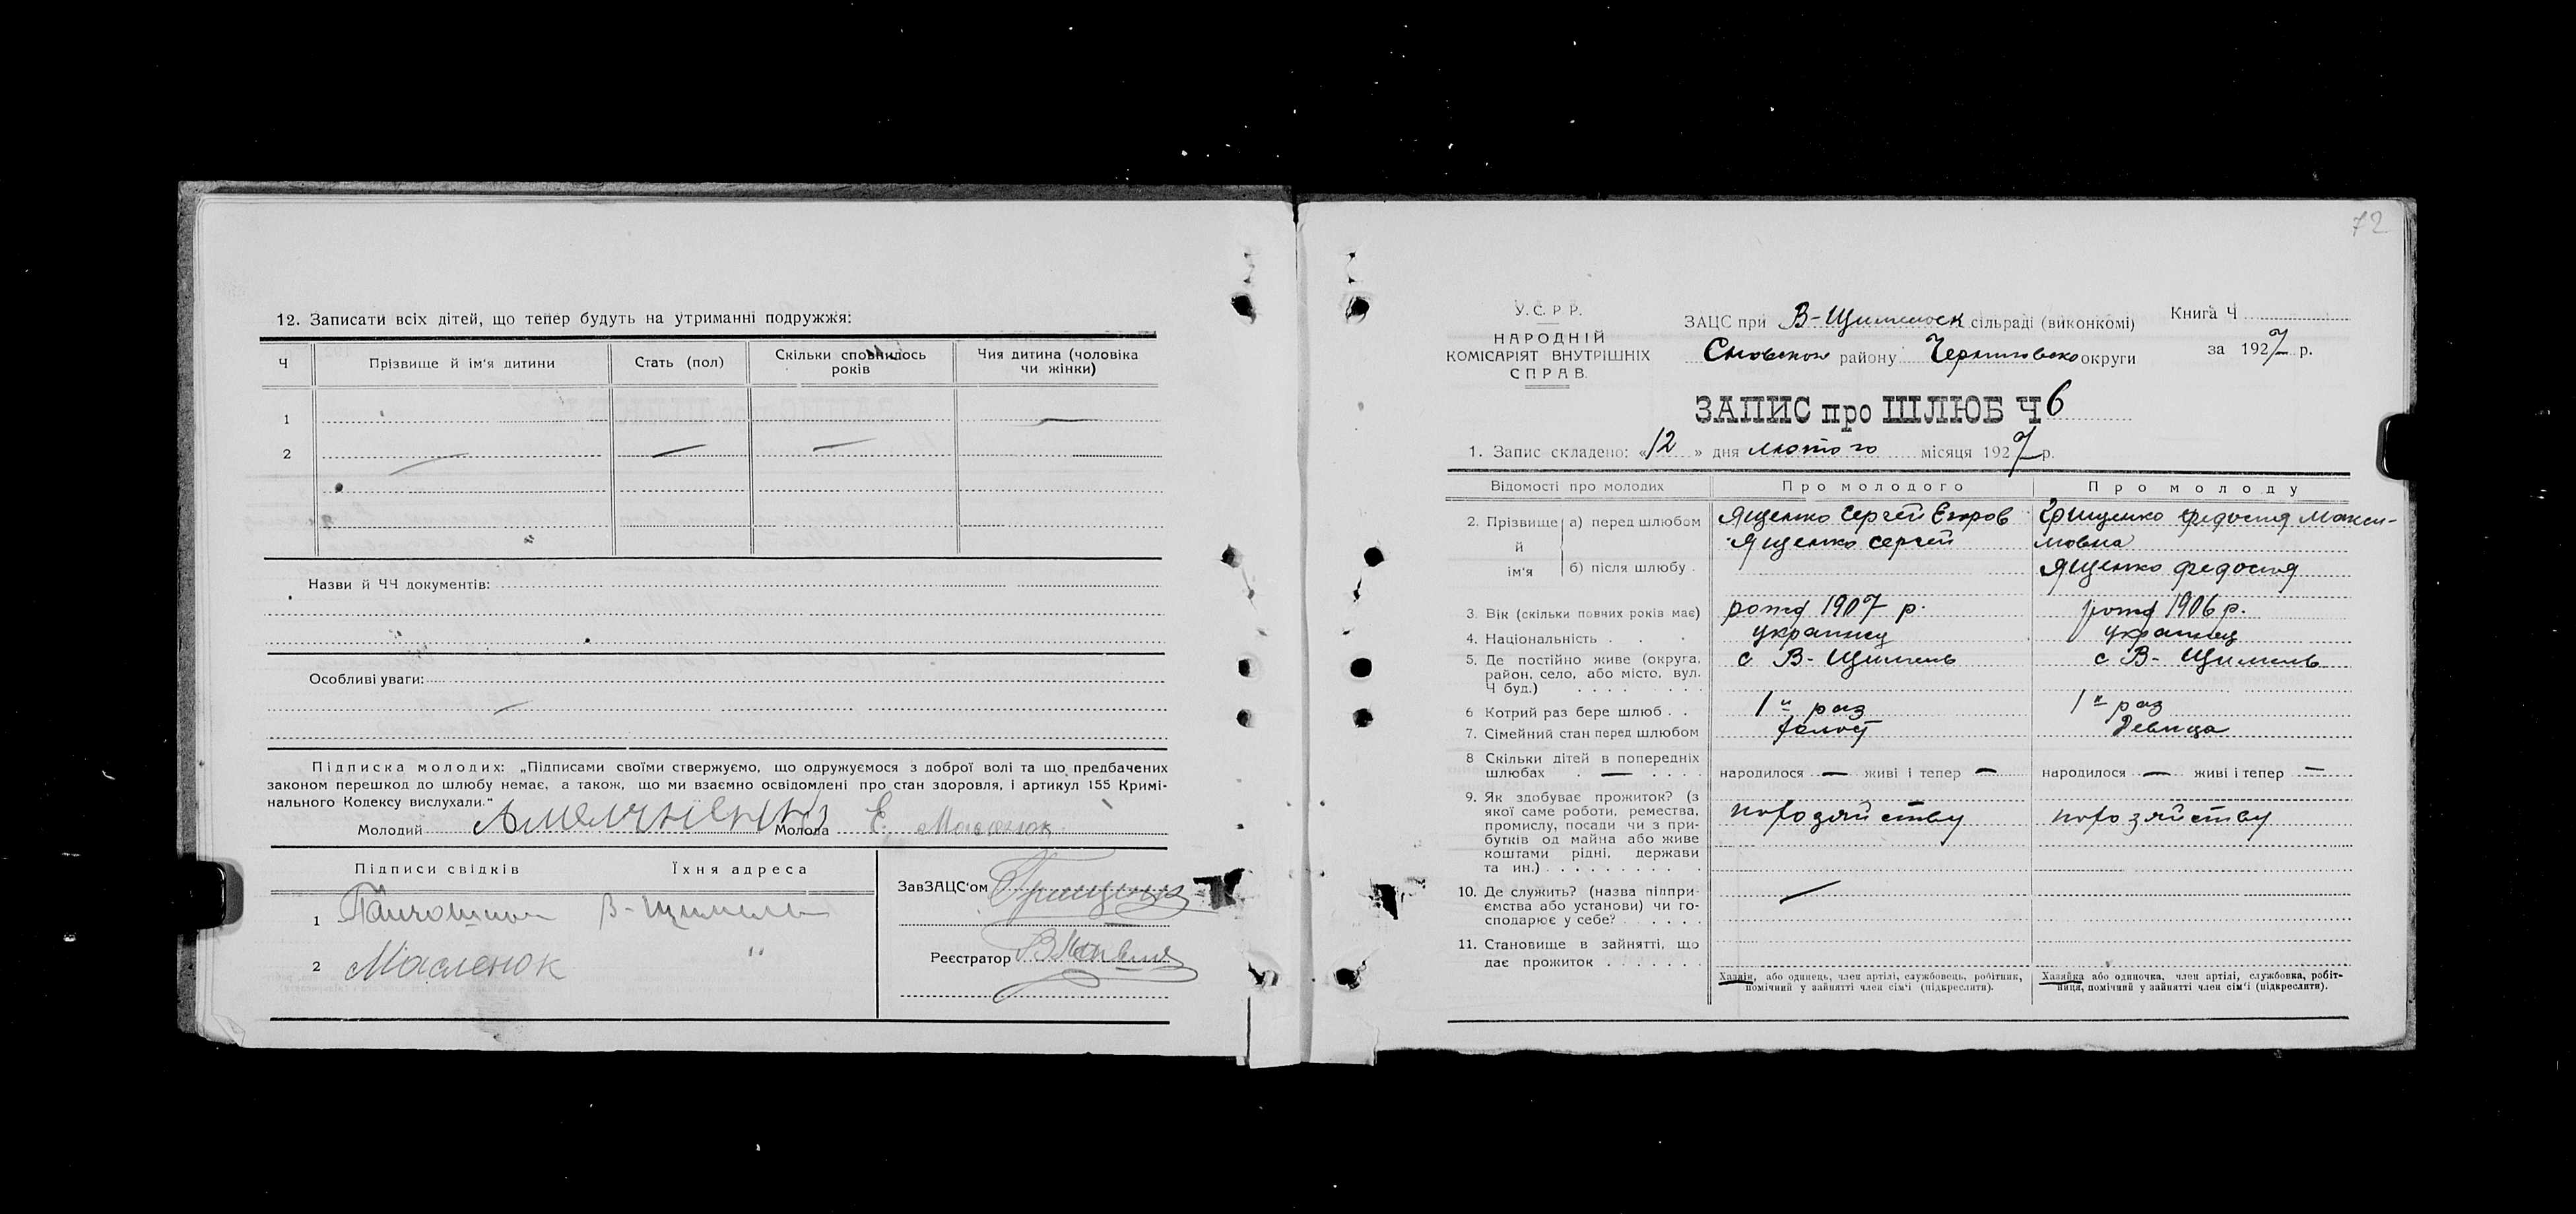 12. Записати всіх дітей, що тепер будуть на утриманні подружжя:
Ч Прізвище й ім'я дитини Стать (пол) Скільки сповнилось років Чия дитина (чоловіка чи жінки)
1
2
Назви й ЧЧ документів:
Особливі уваги:
Підписка молодих: „Підписами своїми стверджуємо, що одружуємося з доброї волі та що предбачених
законом перешкод до шлюбу немає, а також, що ми взаємно освідомлені про стан здоровля, і артикул 155 Кримі-
нального Кодексу вислухали."
Молодий Молода Е. Масленок
Підписи свідків Їхня адреса
1 В-Щимель
2 Масленок "
ЗавЗАЦС'ом Грищенко
Реєстратор
72
У.С.Р.Р.
НАРОДНІЙ
КОМІСАРІЯТ ВНУТРІШНІХ
СПРАВ.
ЗАЦС при В-Щимельск сільраді (виконкомі)
Сновского району Черниговско округи
Книга Ч
за 1927 р.
ЗАПИС про ШЛЮБ Ч 6
1. Запис складено: «12» дня лютого місяця 1927 р.
Відомості про молодих Про молодого Про молоду
2. Прізвище й ім'я а) перед шлюбом Ященко Сергей Егоров Грищенко Федосия Макси-
мовна
б) після шлюбу Ященко Сергей Ященко Федосия
3. Вік (скільки повних років має) рожд 1907 р. рожд 1906 р.
4. Національність украинец украинец
5. Де постійно живе (округа, с В-Щимель с В-Щимель
район, село, або місто, вул.
Ч буд.)
6 Котрий раз бере шлюб 1й раз 1й раз
7. Сімейний стан перед шлюбом холост Девица
8 Скільки дітей в попередніх
шлюбах — народилося — живі і тепер — народилося — живі і тепер —
9. Як здобуває прожиток? (з
якої саме роботи, ремества, похозяйству похозяйству
промислу, посади чи з при-
бутків од майна або живе
коштами рідні, держави
та ин.)
10. Де служить? (назва підпри- —
ємства або установи) чи го-
сподарює у себе?
11. Становище в зайнятті, що
дає прожиток
Хазяїн, або одинець, член артілі, службовець, робітник,
помічний у зайнятті член сім'ї (підкреслити).
Хазяйка або одиночка, член артілі, службовка, робіт-
ниця, помічний у зайнятті член сім'ї (підкреслити).